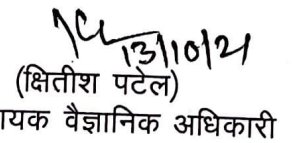 13/10/21
(क्षितीश पटेल)
ायक वैज्ञानिक अधिकारी